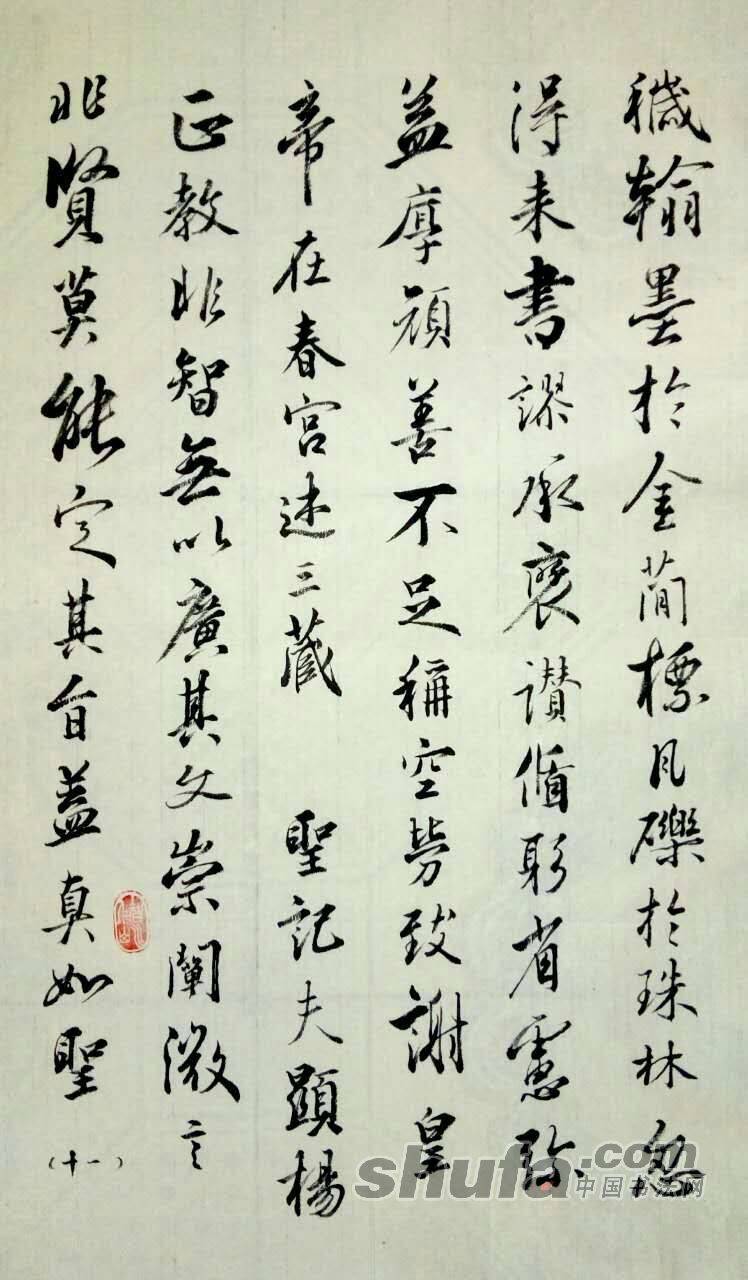 穢翰墨於金蕳標凡礫於珠林忽
得来書謬承褒讃循躬省慮弥
益厚顔善不足稱空勞致謝皇
帝在春宮述三藏 聖記夫顕楊
正教非智無以廣其文崇闡微言
非賢莫能定其旨盖真如聖
(十一)
shufa.com
中国书法网